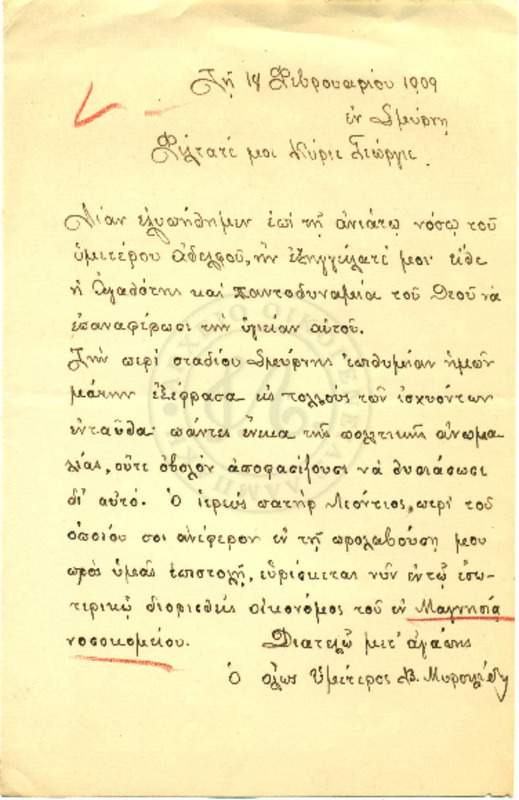 Τῇ 18 Φεβρουαρίου 1909
ἐν Σμύρνῃ
Φίλτατέ μοι Κύριε Γεώργιε
Λίαν ἐλυπήθημεν ἐπὶ τῇ ἀνιάτῳ νόσῳ τοῦ
ὑμετέρου ἀδελφοῦ, ἣν ἐξηγγείλατέ μοι· εἴθε
ἡ Ἀγαθότης καὶ παντοδυναμία τοῦ Θεοῦ νὰ
ἐπαναφέρωσι τὴν ὑγιείαν αὐτοῦ.
Τὴν περὶ σταδίου Σμύρνης ἐπιθυμίαν ἡμῶν
μάτην ἐξέφρασα εἰς πολλοὺς τῶν ἰσχυόντων
ἐνταῦθα· πάντες ἕνεκα τῆς πολιτικῆς ἀνωμα-
λίας, οὔτε ὀβολὸν ἀποφασίζουσι νὰ θυσιάσωσι
δι' αὐτό. Ὁ ἱερεὺς πατὴρ Λεόντιος, περὶ τοῦ
ὁποίου σοι ἀνέφερον ἐν τῇ προλαβούσῃ μου
πρὸς ὑμᾶς ἐπιστολῇ, εὑρίσκεται νῦν ἐν τῷ ἐσω-
τερικῷ διορισθεὶς οἰκονόμος τοῦ ἐν Μαγνησίᾳ
νοσοκομείου. Διατελῶ μετ' ἀγάπης
Ὁ ὅλως Ὑμέτερος Β.